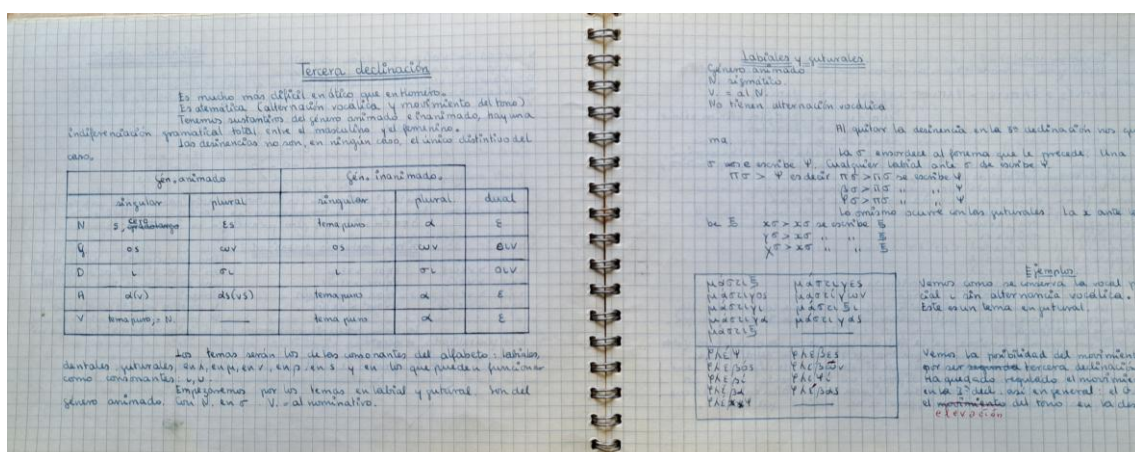 Tercera declinación
Es mucho más difícil en ático que en Homero.
Es atemática (alternación vocálica y movimiento del tono)
Tenemos sustantivos del género animado e inanimado, hay una
indiferenciación gramatical total entre el masculino y el femenino.
Las desinencias no son, en ningún caso, el único distintivo del
caso.
Gén. animado Gén. inanimado.
singular plural singular plural dual
N s, cero εs tema puro α ε
G os ων os ων οιν
D ι σι ι σι οιν
A α(ν) αs(νs) tema puro α ε
V tema puro, = N. — tema puro α ε
Los temas serán los de las consonantes del alfabeto: labiales,
dentales, guturales, en λ, en μ, en ν, en ρ, en s y en los que pueden funcionar
como consonantes: ι, υ.
Empezaremos por los temas en labial y gutural. Son del
género animado. Con N. en σ V. = al nominativo.
Labiales y guturales
Género animado
N. sigmático
V. = al N.
No tienen alternación vocálica
Al quitar la desinencia en la 3ª declinación nos
ma
La σ ensordece al fonema que le precede. Una
σ se escribe Ψ. Cualquier labial ante σ se escribe Ψ
πσ > Ψ es decir πσ > πσ se escribe Ψ
βσ > πσ " " Ψ
φσ > πσ " " Ψ
Lo mismo ocurre con las guturales. La κ ante
be ξ κσ > κσ se escribe ξ
γσ > κσ " " ξ
χσ > κσ " " ξ
Ejemplos
μάστιξ μάστιγες
μάστιγος μαστίγων
μάστιγι μάστιξι
μάστιγα μάστιγας
μάστιξ —
Vemos como se conserva la vocal
cial ι sin alternancia vocálica.
Este es un tema en gutural.
φλέψ φλέβες
φλεβός φλεβῶν
φλεβί φλεψί
φλέβα φλέβας
φλέψ —
Vemos la posibilidad del
por ser tercera declinación
Ha quedado regulado el
en la 3ª decl. así en general: el
el movimiento del tono en la
elevación